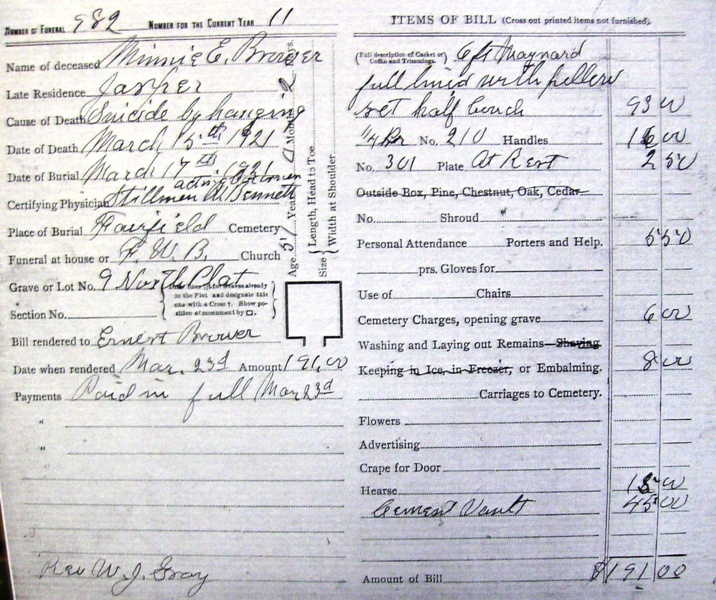 NUMBER OF FUNERAL 982 NUMBER FOR THE CURRENT YEAR 11
Name of deceased Minnie E. Brower
Late Residence Jasper
Cause of Death Suicide by hanging
Date of Death March 15th 1921
Date of Burial March 17th 1921
acting Coroner
Certifying Physician Stillman A. Bennett
Place of Burial Fairfield Cemetery
Funeral at house or F. W. B. Church
Grave or Lot No. 9 North Plat
Section No.
Draw lines for Graves already in the Plot and designate this one with a Cross †. Show position of monument by □.
Age 51 Years 0 Months 2 Days.
Size { Length, Head to Toe
Width at Shoulder
Bill rendered to Ernest Brower
Date when rendered Mar. 23d Amount 191.00
Payments Paid in full Mar 23d
"
"
Rev W. J. Gray
ITEMS OF BILL (Cross out printed items not furnished).
(Full description of Casket or Coffin and Trimmings.) 6ft Maynard
full lined with pillow
set half couch 93 00
1/4 Pr No. 210 Handles 16 00
No. 301 Plate At Rest 2 50
Outside Box, Pine, Chestnut, Oak, Cedar
No. Shroud
Personal Attendance Porters and Help. 5 50
prs. Gloves for
Use of Chairs
Cemetery Charges, opening grave 6 00
Washing and Laying out Remains—Shaving
Keeping in Ice, in Freezer, or Embalming. 8 00
Carriages to Cemetery.
Flowers
Advertising
Crape for Door
Hearse 15 00
Cement Vault 45 00
Amount of Bill $191 00